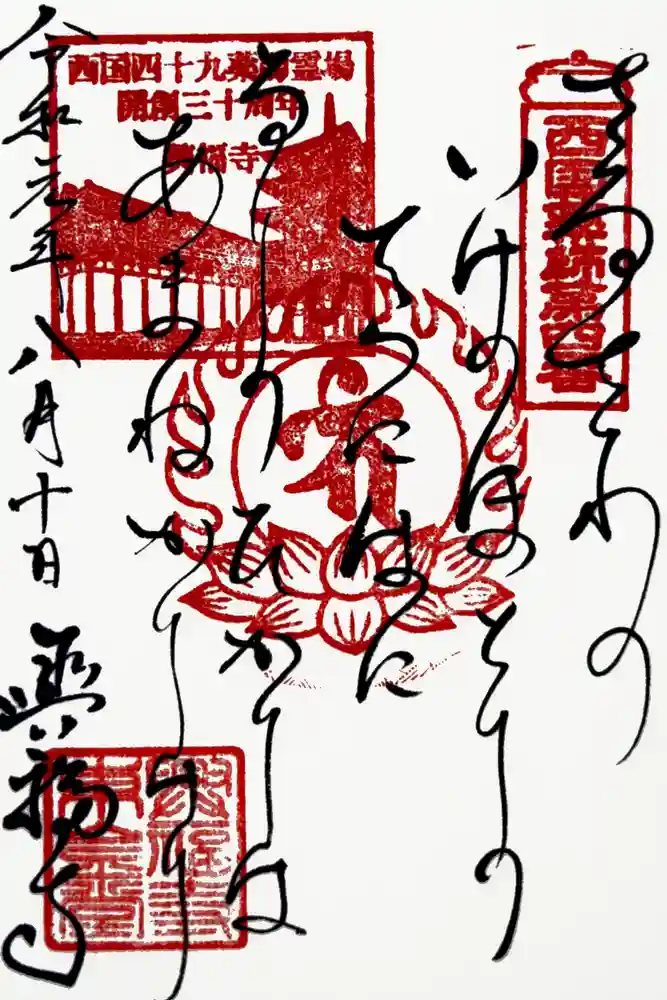 西国薬師第四番
さるさわの
いけのほとりの
てらにはに
るりのひかりは
あまねかりけり
西国四十九薬師霊場
開創三十周年
興福寺
令和元年八月十日
興福寺